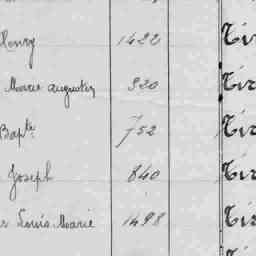 Henry 1422 Tir
Marie augustin 320 Tir
Bapte 752 Tir
Joseph 840 Tir
Louis Marie 1498 Tir